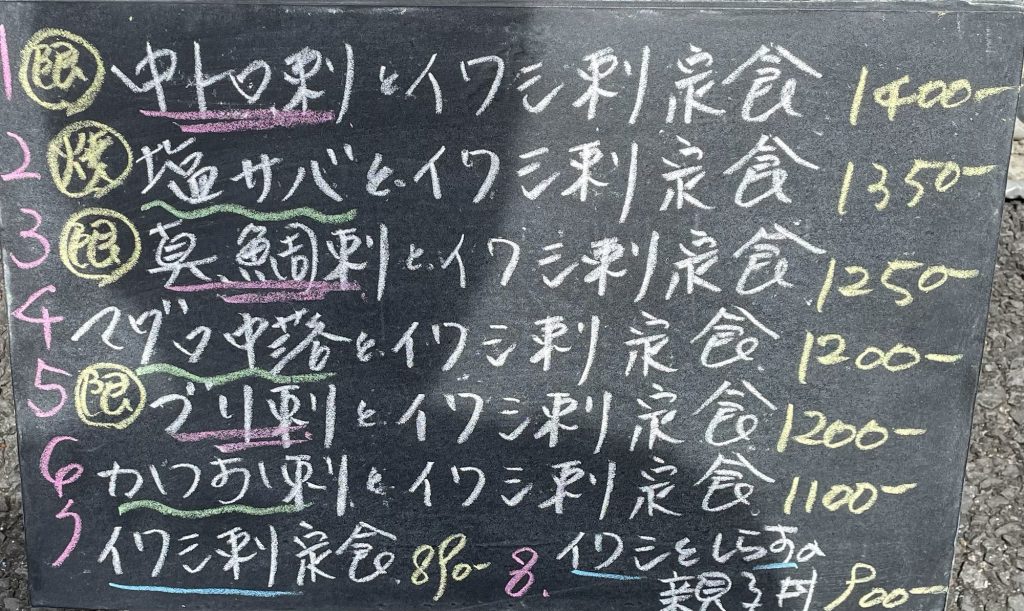 1 限 中トロ刺とイワシ刺定食 1400-
2 焼 塩サバとイワシ刺定食 1350-
3 限 真鯛刺とイワシ刺定食 1250-
4 マグロ中落とイワシ刺定食 1200-
5 限 ブリ刺とイワシ刺定食 1200-
6 かつお刺とイワシ刺定食 1100-
7 イワシ刺定食 890-
8. イワシとしらすの
親子丼 900-